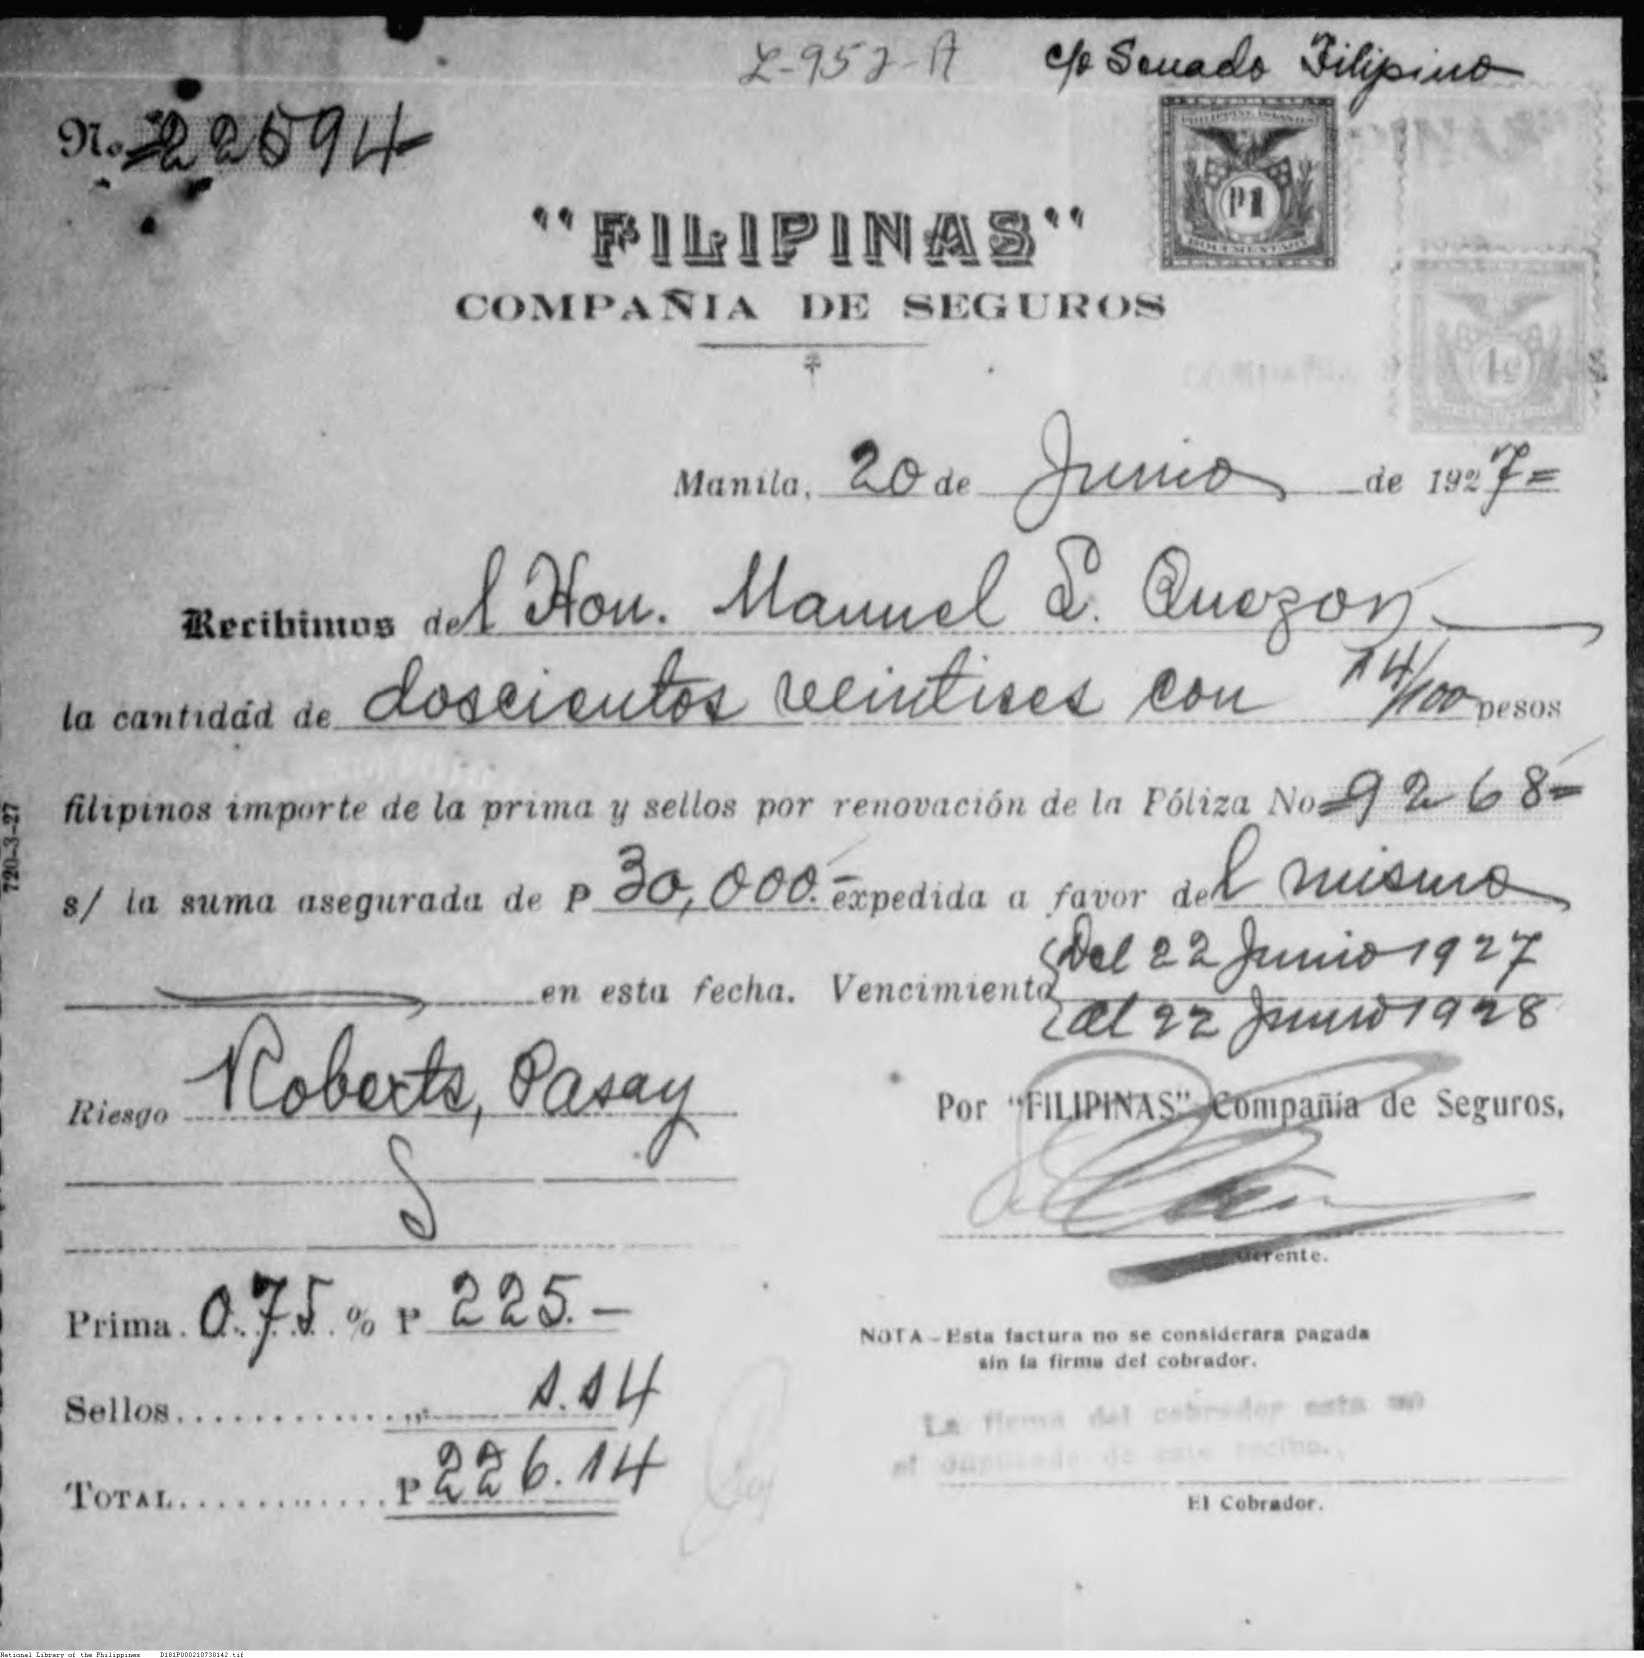 L-952-A c/o Senado Filipino
No. 22594
PHILIPPINE ISLANDS
P1
DOCUMENTARY
"FILIPINAS"
COMPAÑIA DE SEGUROS
Manila, 20 de Junio de 1927=
Recibimos del Hon. Manuel L. Quezon
la cantidad de doscientos veintiseis con 14/100 pesos
filipinos importe de la prima y sellos por renovación de la Póliza No =9268=
s/ la suma asegurada de P 30,000.- expedida a favor del mismo
en esta fecha. Vencimiento Del 22 Junio 1927
al 22 Junio 1928
Riesgo Roberts, Pasay
Por "FILIPINAS" Compañía de Seguros,
Gerente.
Prima. 0.75. % P 225.-
Sellos............. „ 1.14
TOTAL............ P 226.14
NOTA - Esta factura no se considerara pagada
sin la firma del cobrador.
La firma del cobrador esta en
el duplicado de este recibo.
El Cobrador.
720-3-27
National Library of the Philippines D181P000210738142.tif